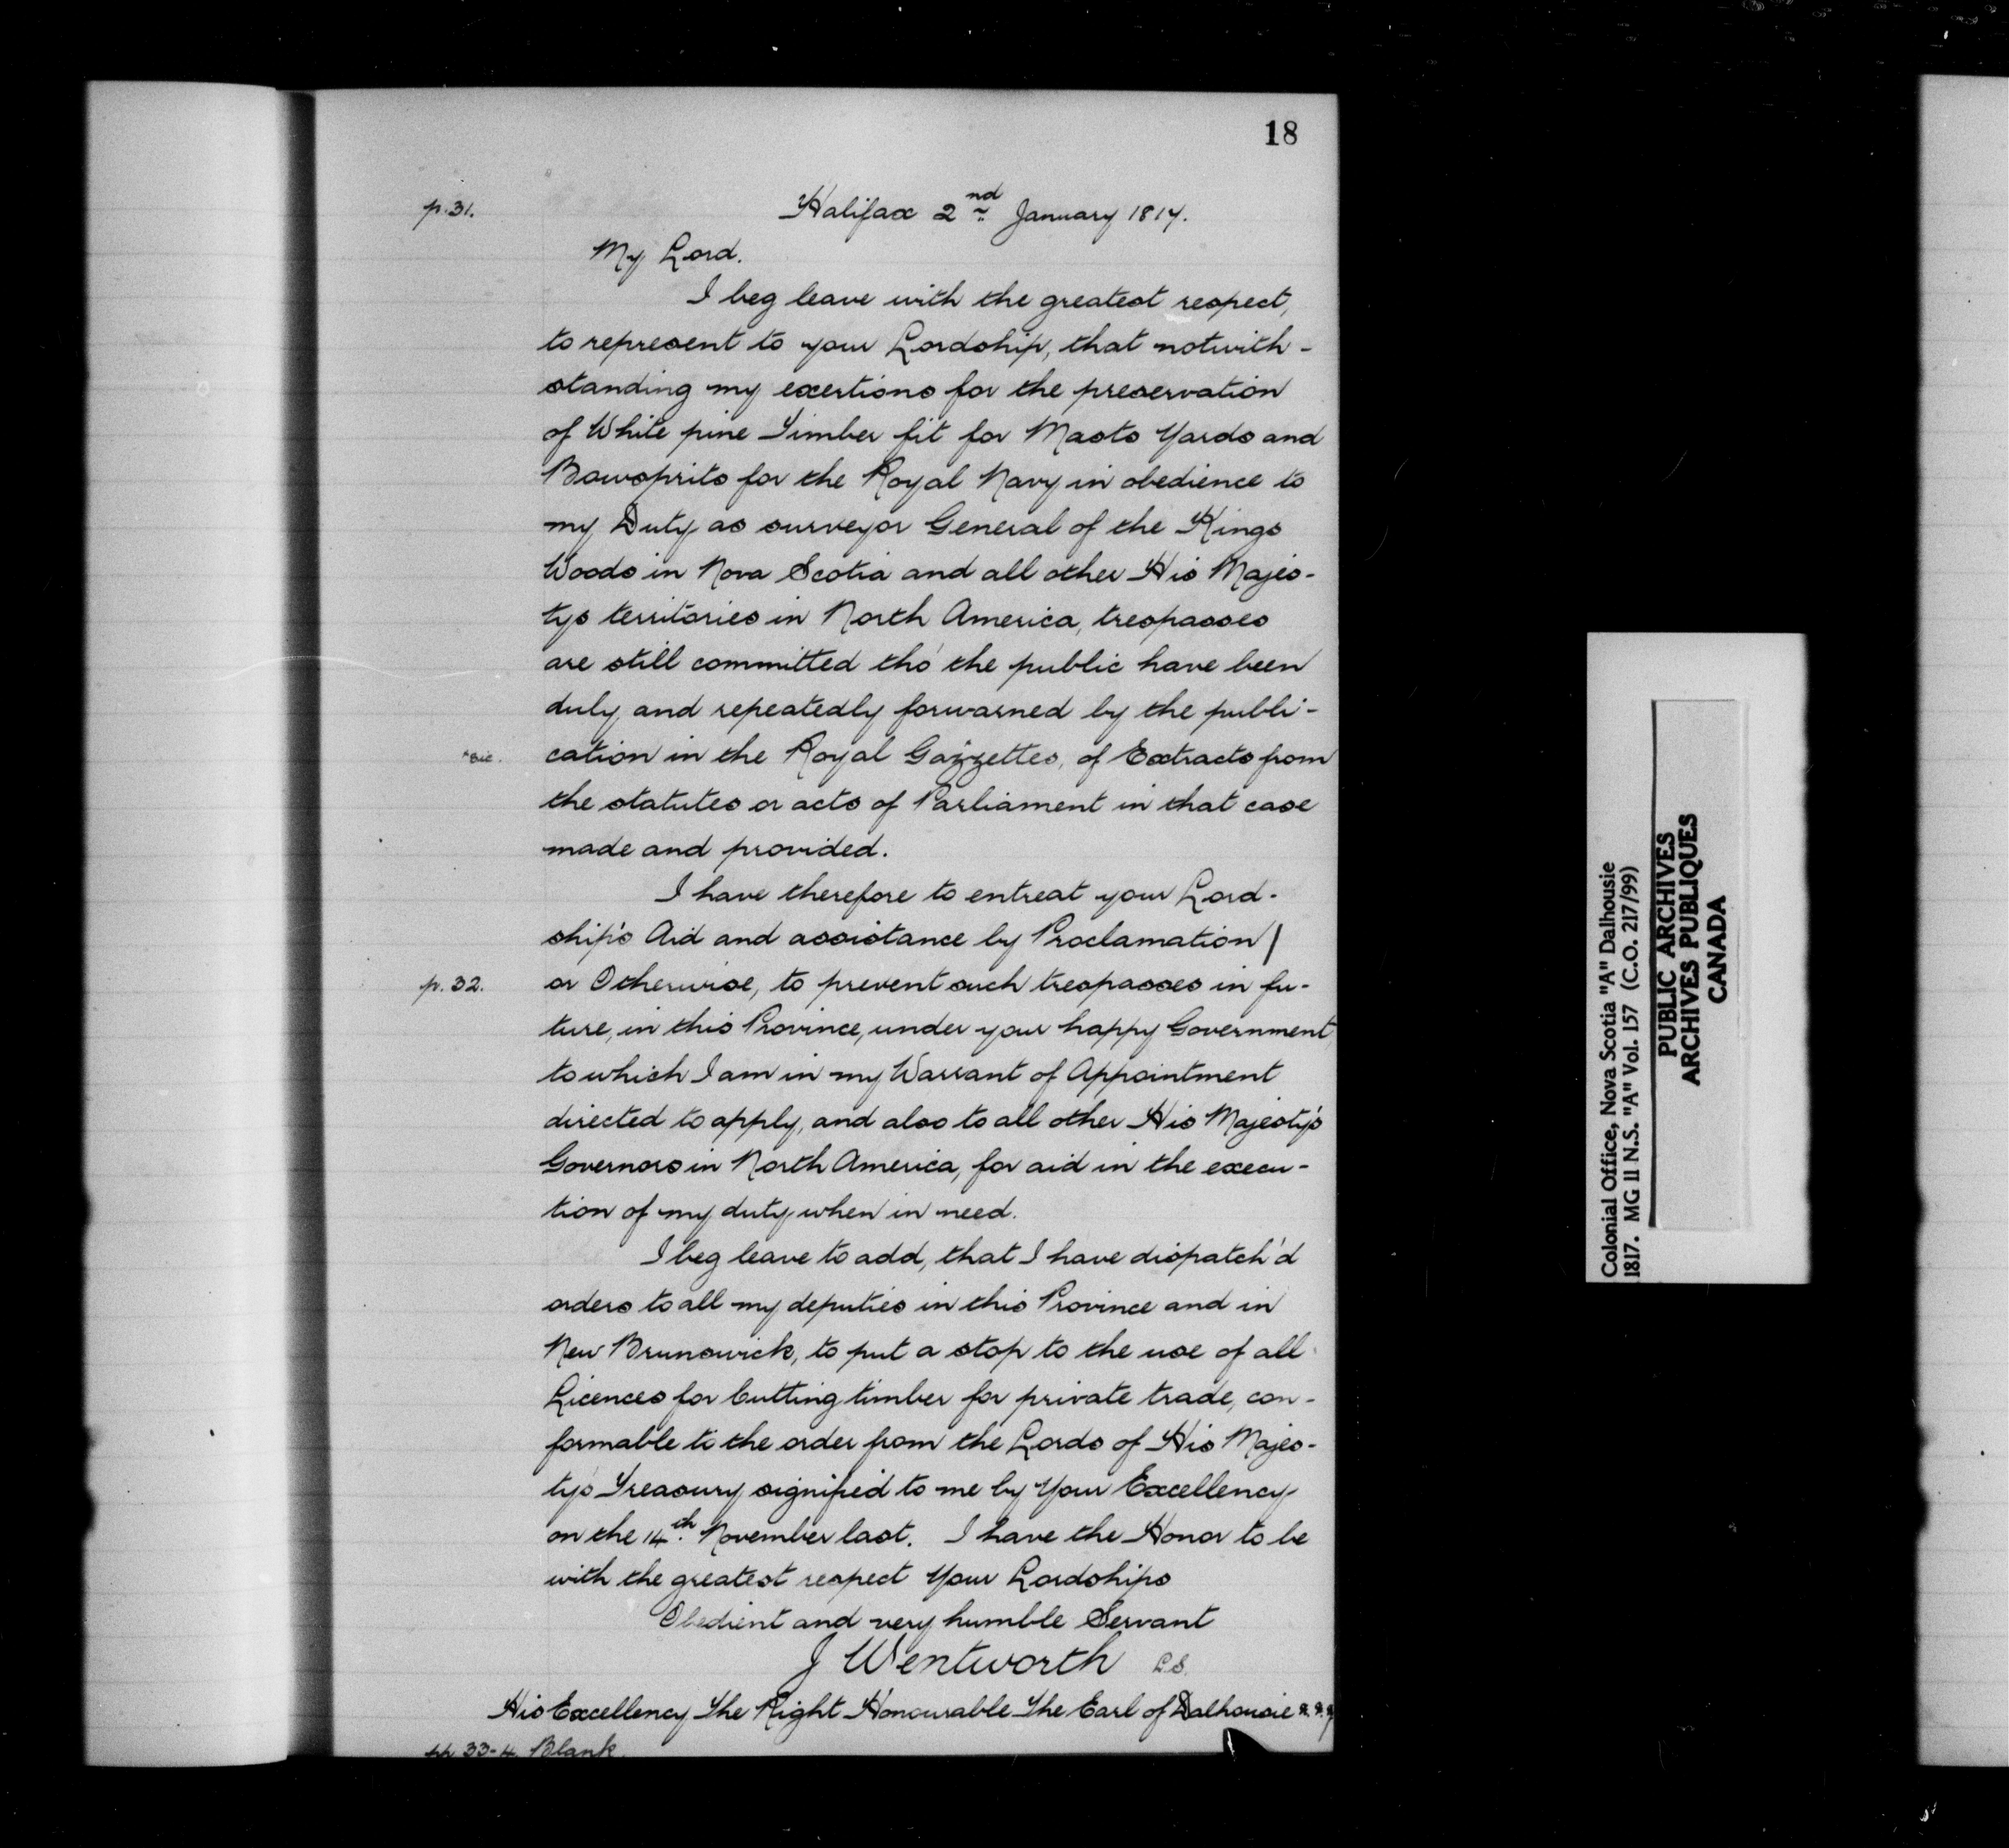 18
p. 31. Halifax 2nd January 1817.
My Lord.
I beg leave with the greatest respect,
to represent to your Lordship, that notwith-
standing my exertions for the preservation
of White pine Timber fit for Masts Yards and
Bowsprits for the Royal Navy in obedience to
my Duty as surveyor General of the Kings
Woods in Nova Scotia and all other His Majes-
tys territories in North America, trespasses
are still committed tho' the public have been
duly and repeatedly forwarned by the publi-
*sic. cation in the Royal Gazzettes, of Extracts from
the statutes or acts of Parliament in that case
made and provided.
I have therefore to entreat your Lord-
ship's Aid and assistance by Proclamation /
p. 32. or Otherwise, to prevent such trespasses in fu-
ture, in this Province, under your happy Government
to which I am in my Warrant of Appointment
directed to apply, and also to all other His Majesty's
Governors in North America, for aid in the execu-
tion of my duty when in need.
I beg leave to add, that I have dispatch'd
orders to all my deputies in this Province and in
New Brunswick, to put a stop to the use of all
Licences for Cutting timber for private trade, con-
formable to the order from the Lords of His Majes-
ty's Treasury signified to me by Your Excellency
on the 14th November last. I have the Honor to be
with the greatest respect Your Lordships
Obedient and very humble Servant
J Wentworth L.S.
His Excellency The Right Honourable The Earl of Dalhousie
pp 33-4 Blank.
Colonial Office, Nova Scotia "A" Dalhousie
1817. MG 11 N.S. "A" Vol. 157 (C.O. 217/99)
PUBLIC ARCHIVES
ARCHIVES PUBLIQUES
CANADA